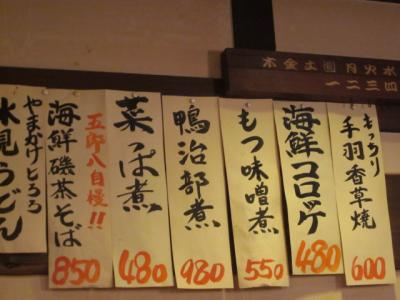 木金土日月火水
一二三四
もっちり
手羽香草焼
600
海鮮コロッケ
480
もつ味噌煮
550
鴨治部煮
980
菜っぱ煮
480
五郎八自慢!!
海鮮磯茶そば
850
やまかけとろろ
氷見うどん